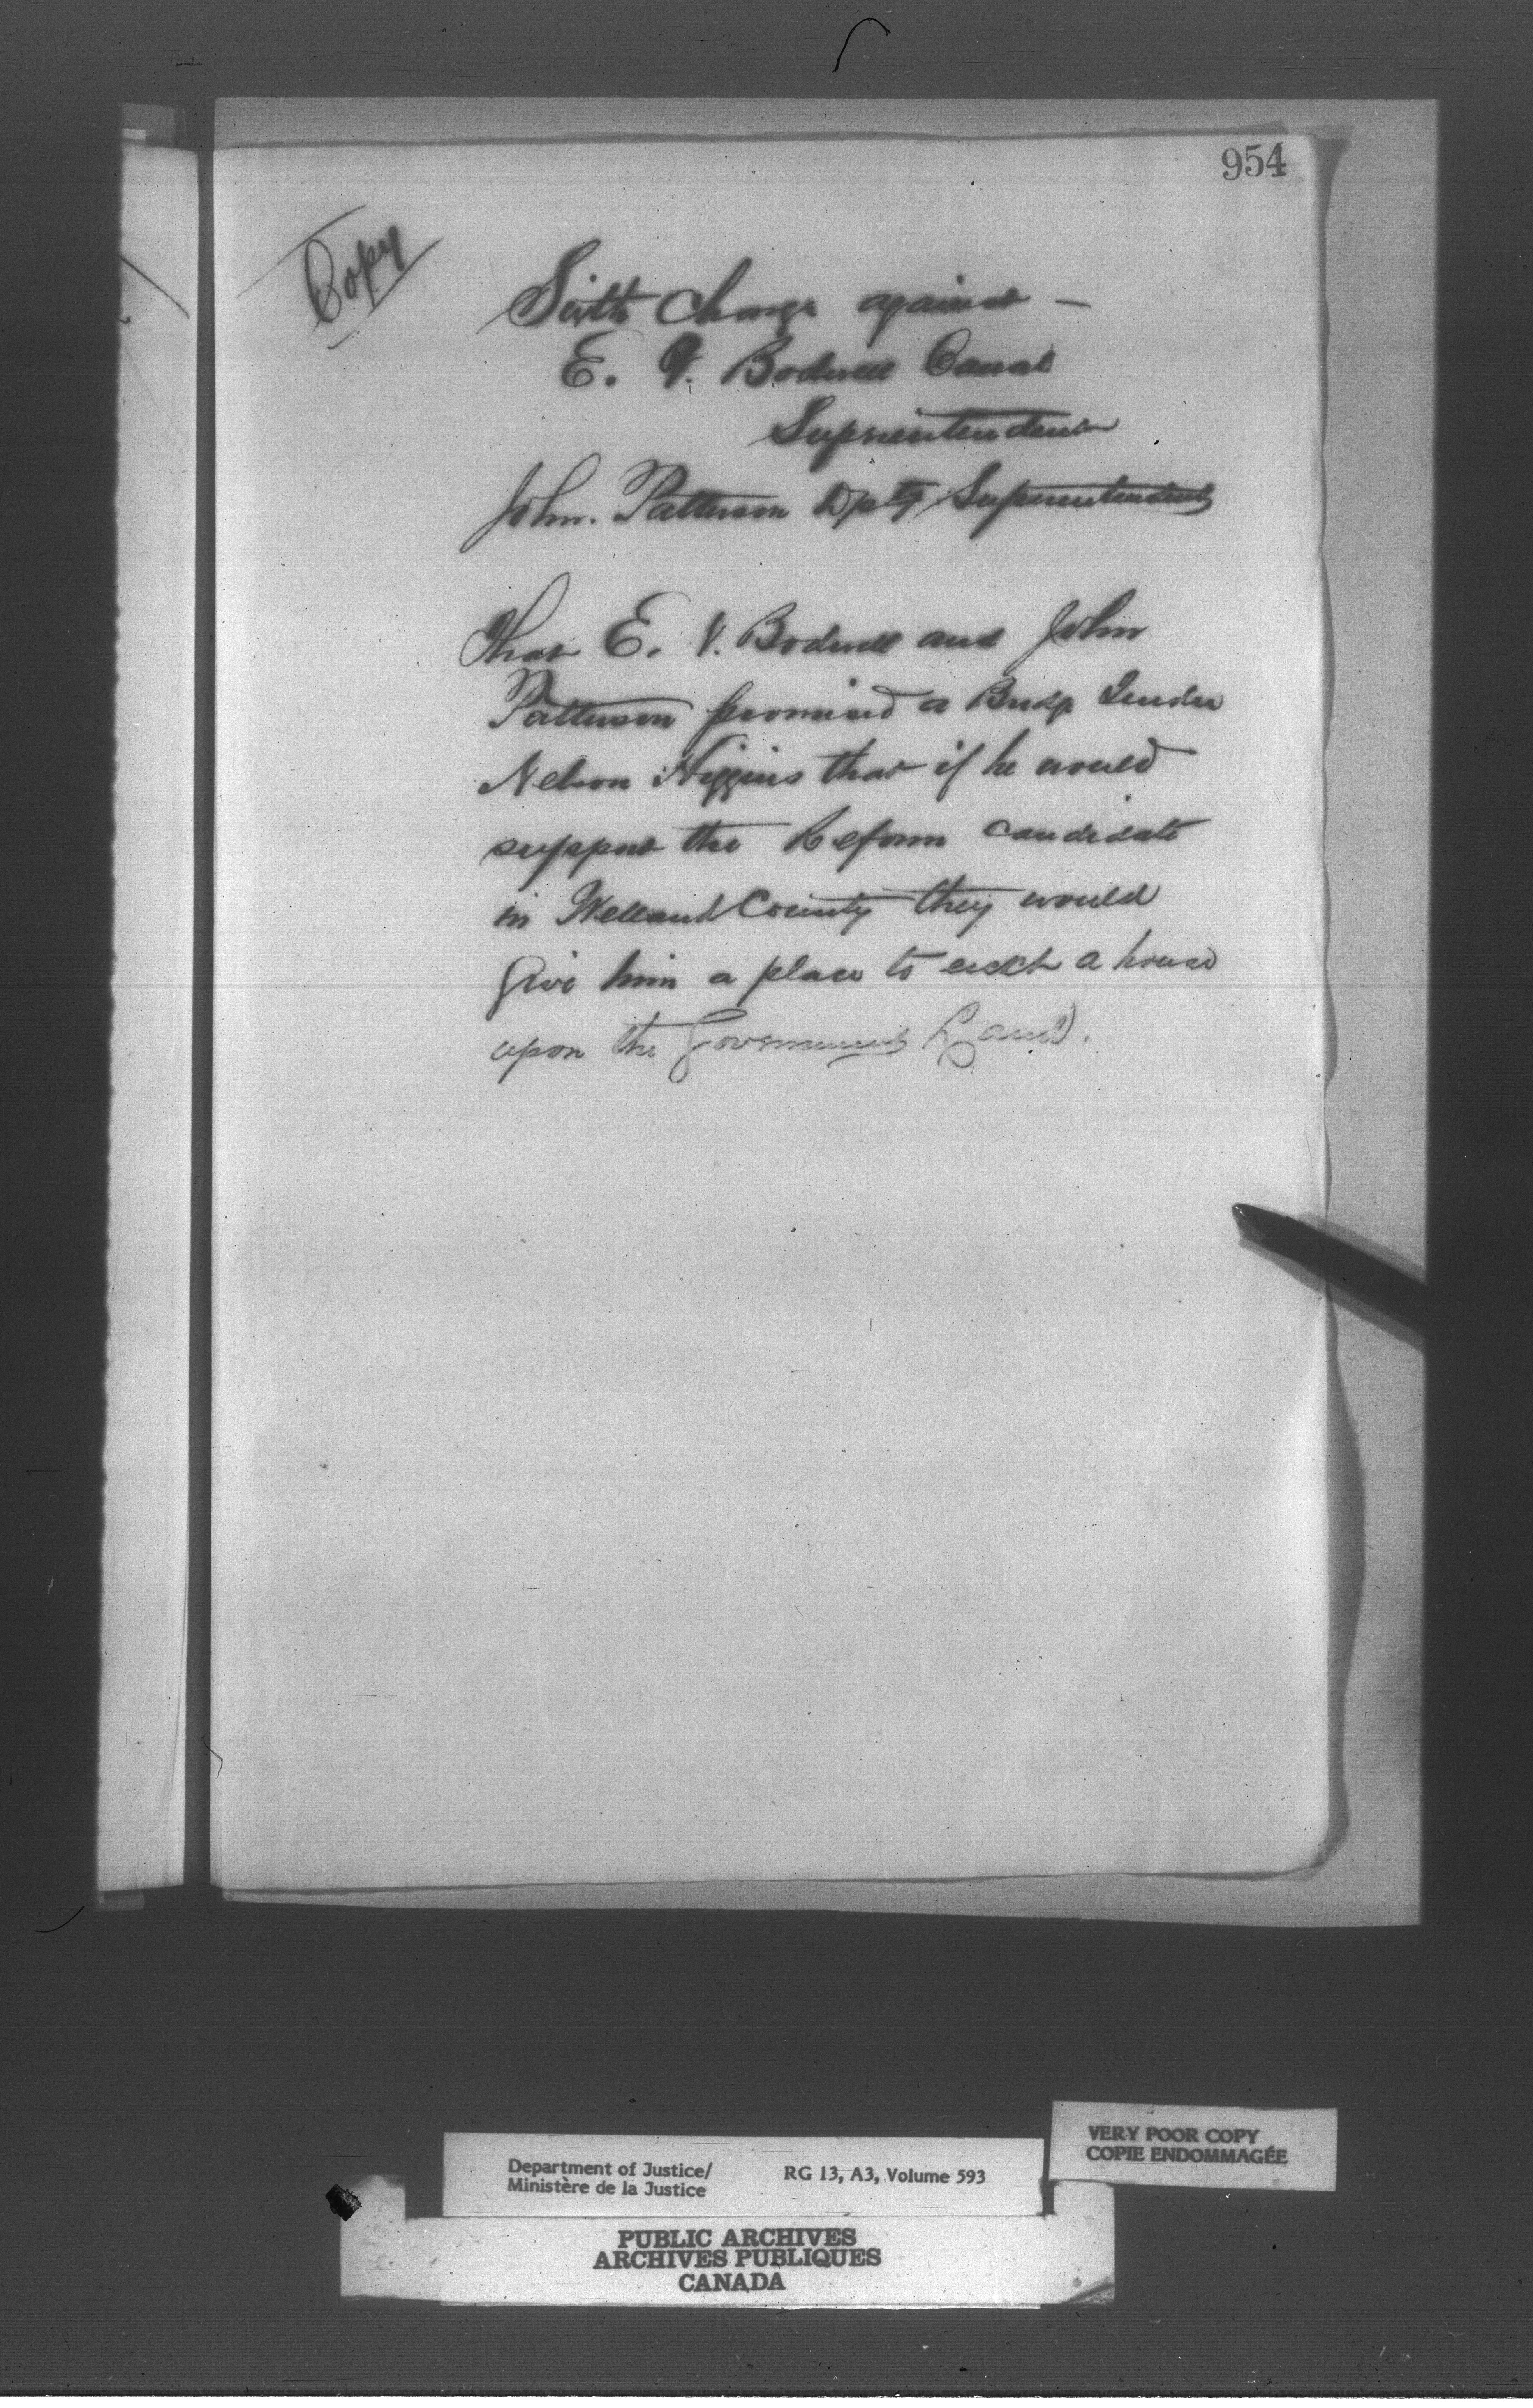 954
Copy
Sixth Charge against —
E. V. Bodwell Canal
Suprientendent
John. Patterson Dpty Superentendent
That E. V. Bodwell and John
Patterson promised a Bridge Tender
Nelson Higgins that if he would
support the Reform candidate
in Welland County they would
Give him a place to erect a house
upon the Government Land.
VERY POOR COPY
COPIE ENDOMMAGÉE
Department of Justice/
Ministère de la Justice
RG 13, A3, Volume 593
PUBLIC ARCHIVES
ARCHIVES PUBLIQUES
CANADA